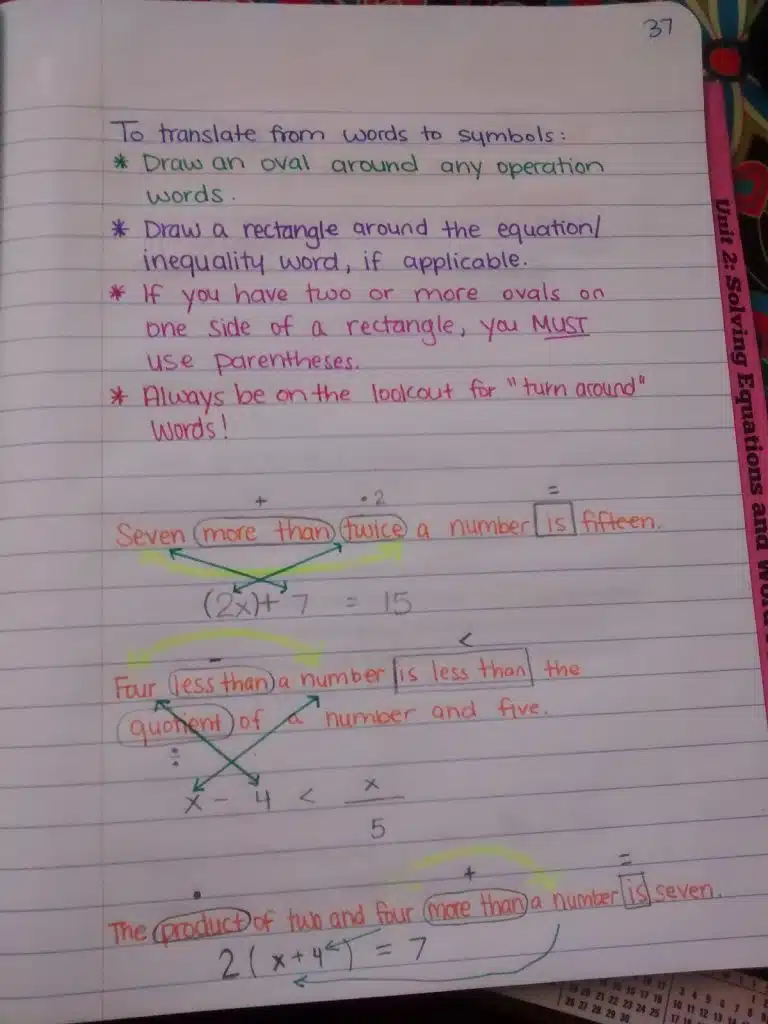 37
To translate from words to symbols:
* Draw an oval around any operation
words.
* Draw a rectangle around the equation/
inequality word, if applicable.
* If you have two or more ovals on
one side of a rectangle, you MUST
use parentheses.
* Always be on the lookout for "turn around"
words!
+ •2 =
Seven more than twice a number is fifteen.
(2x)+ 7 = 15
− <
Four less than a number is less than the
quotient of a number and five.
÷
x − 4 < x
5
• + =
The product of two and four more than a number is seven.
2(x+4) = 7
Unit 2: Solving Equations and Word